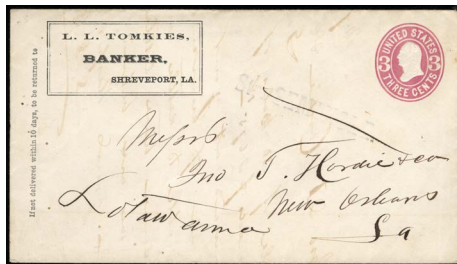 If not delivered within 10 days, to be returned to
L. L. TOMKIES,
BANKER,
SHREVEPORT, LA.
UNITED STATES
3 3
THREE CENTS
Messrs
Jno T. Hardie & co
New Orleans
La
Lotawanna